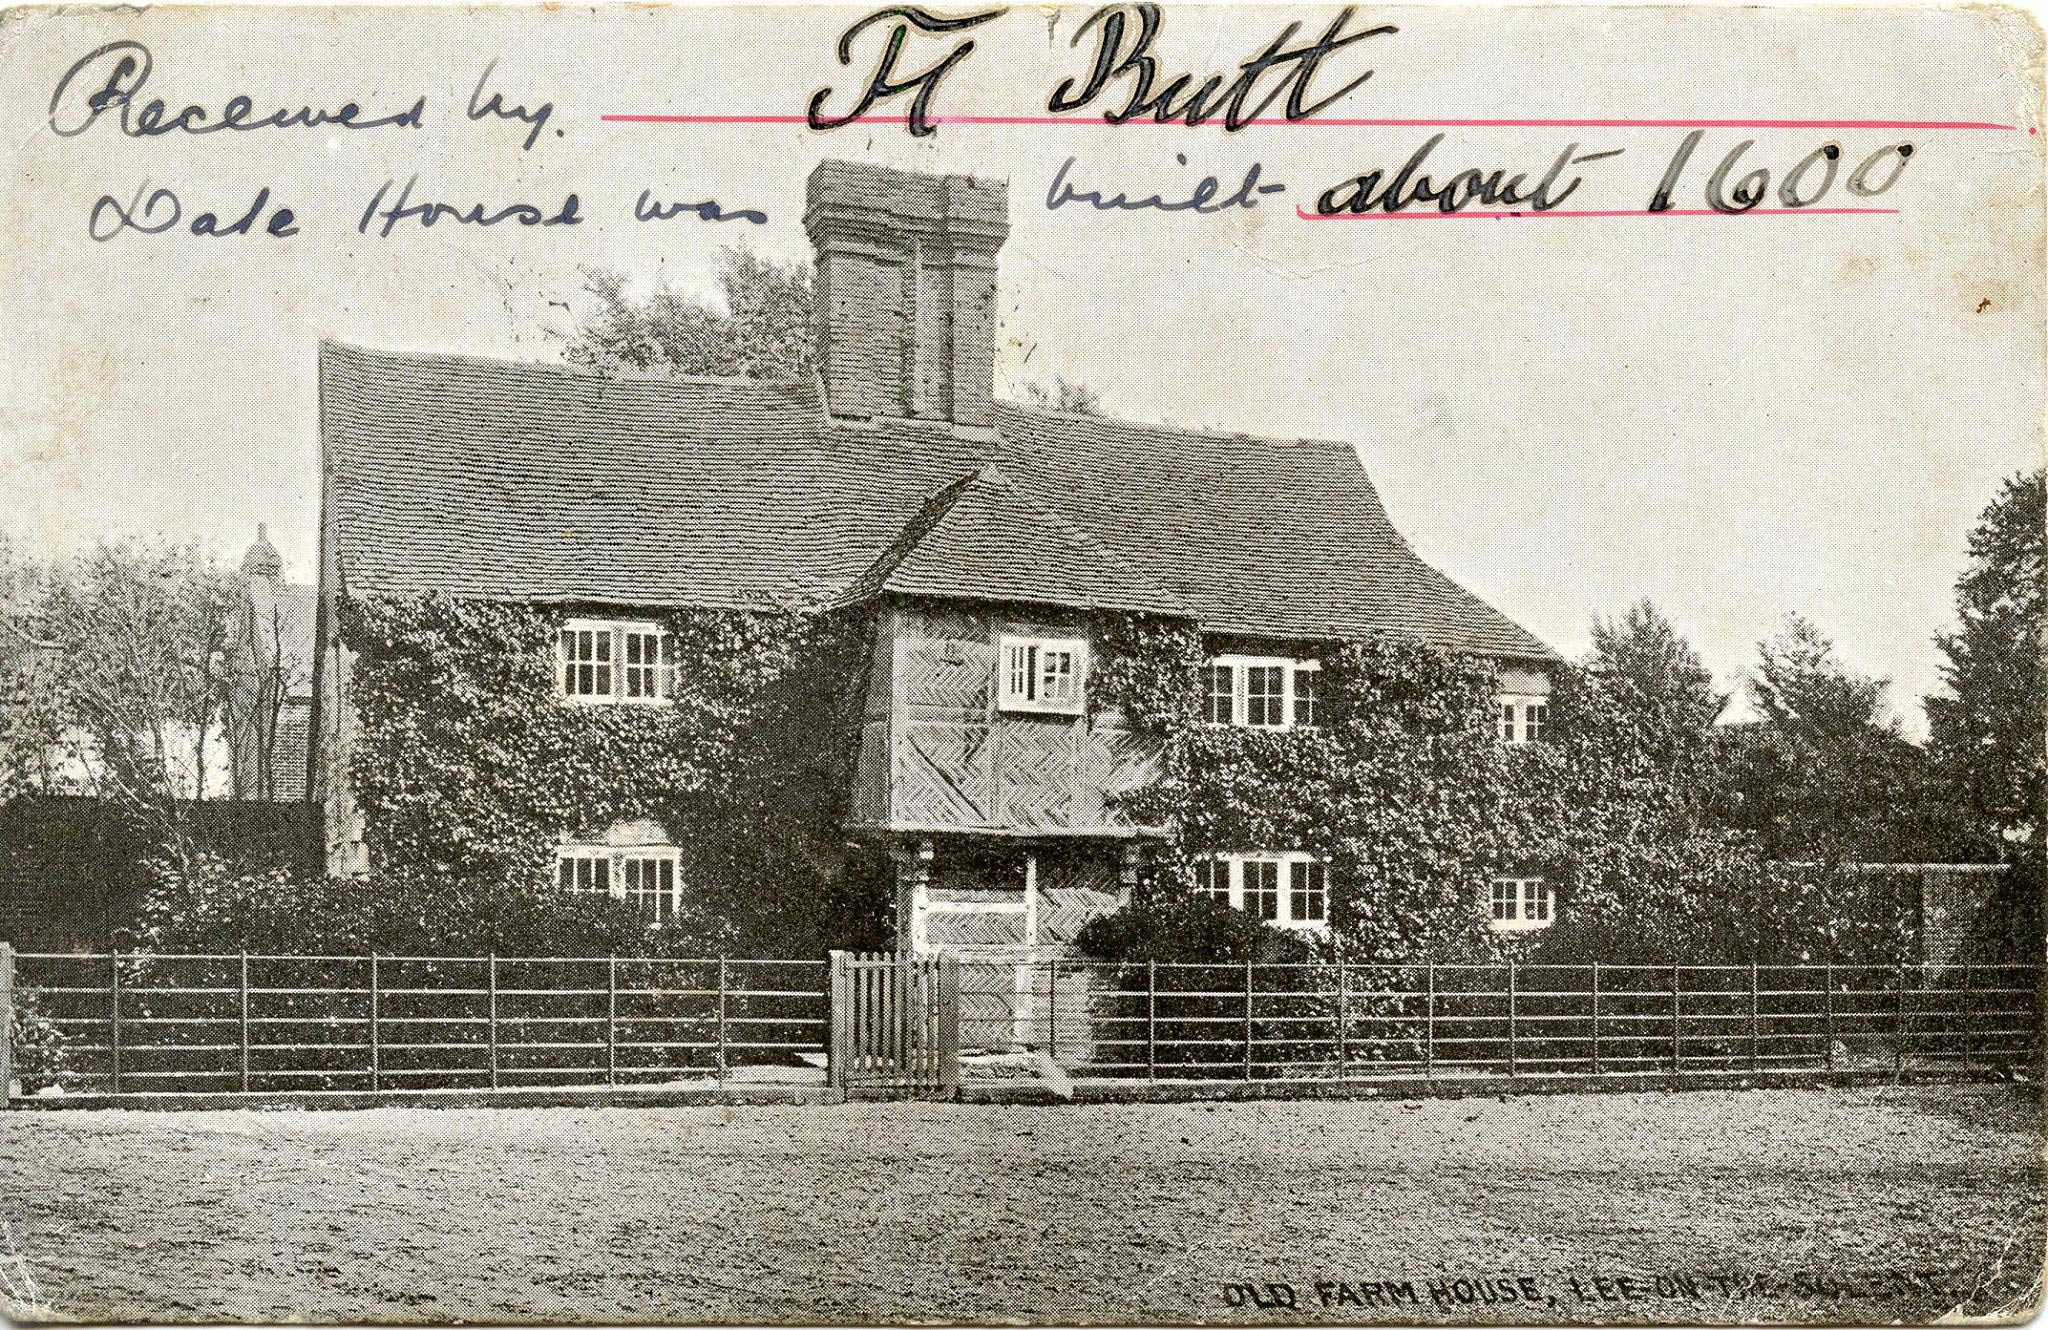 Received by. H Butt
Date House was built about 1600
OLD FARM HOUSE, LEE-ON-THE-SOLENT.